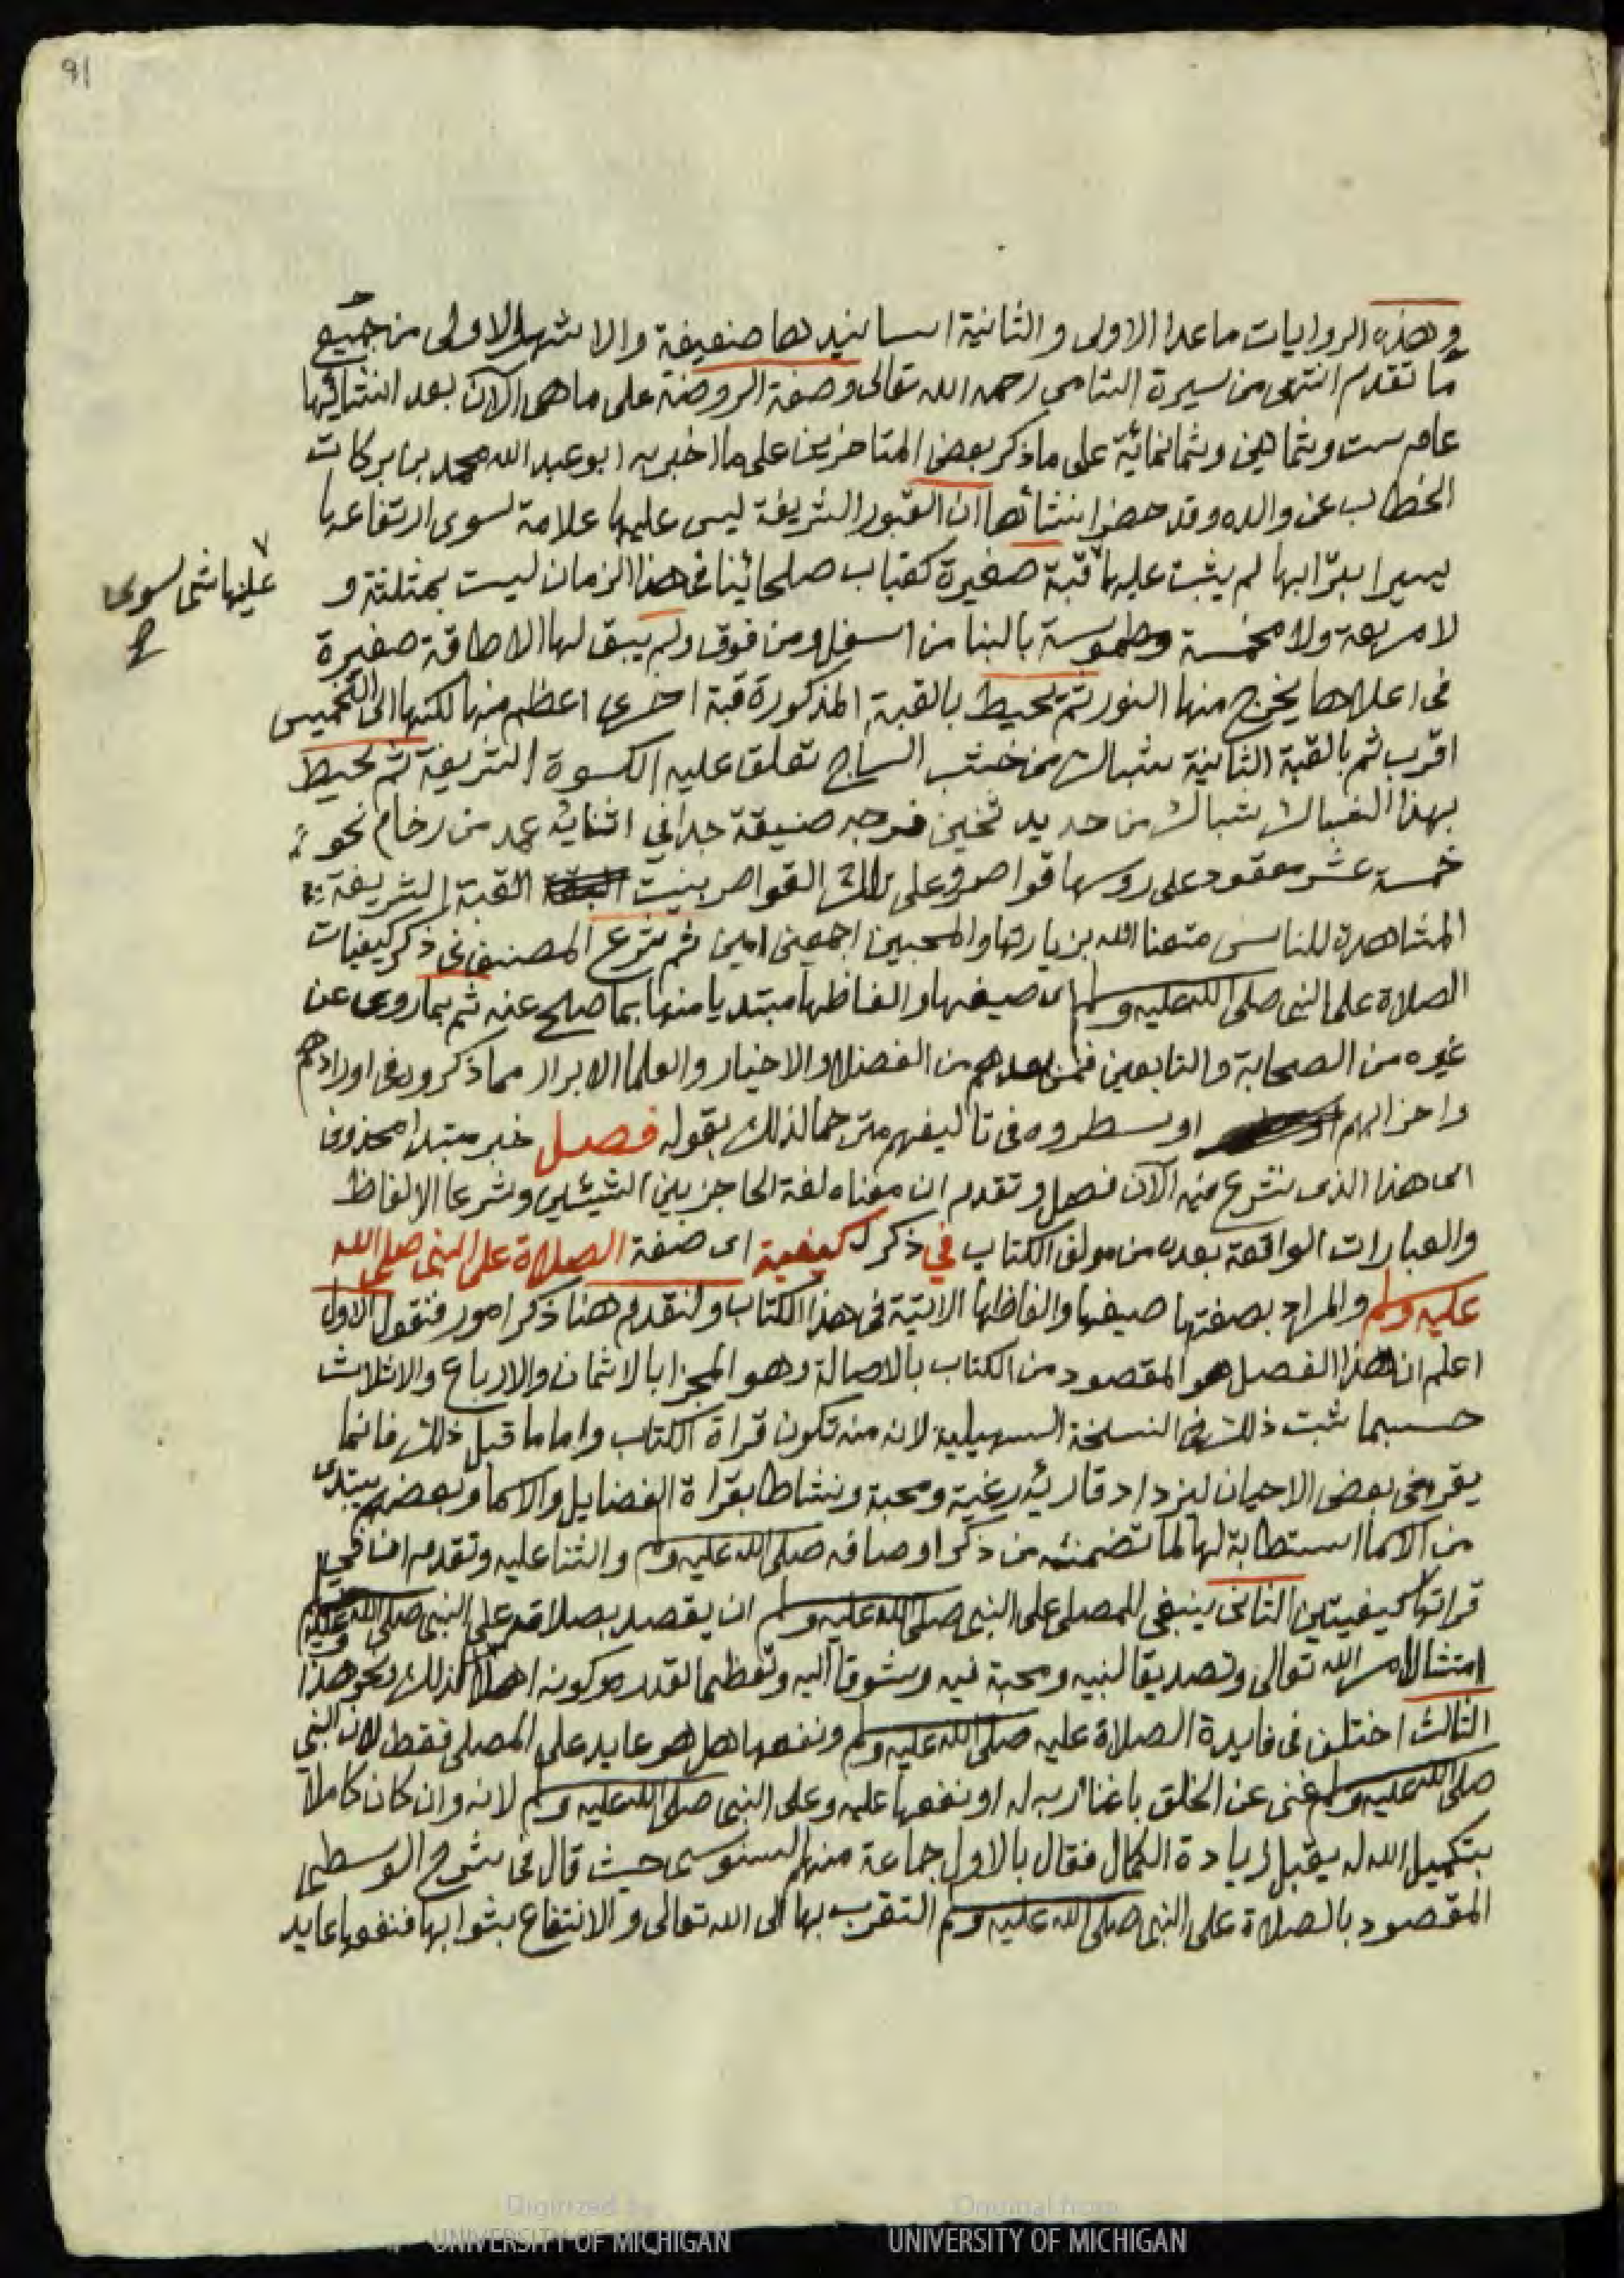 91
وهذه الروايات ماعدا الاولى والثانية اسانيدها ضعيفة والاشهر الاولى من جميع
ما تقدم انتهى من سيرة الشامي رحمه الله تعالى وصفة الروضة على ماهى الآن بعد انشائها
عام ست وثمانين وثمانمائة على ماذكر بعض المتاخرين على ما اخبر به ابو عبد الله محمد بن بركات
الخطاب عن والده وقد حضر انشائها ان القبور الشريفة ليس عليها علامة لسوى ارتفاعها
يسيرا بترابها لم يثبت عليها قبة صغيرة كقباب صلحائنا في هذا الزمان ليست بمثلثة و
عليها شى لسوى
لا مربعة ولا مخمسة وطموسة بالبنا من اسفل ومن فوق ولم يبق لها الا طاقة صغيرة
فى اعلاها يخرج منها النور ثم تحيط بالقبة المذكورة قبة اخرى اعظم منها لكنها الى التخميس
اقرب ثم بالقبة الثانية شباك من خشب الساج تعلق عليه الكسوة الشريفة ثم تحيط
بهذا الشباك شباك من حديد ثخين فرجه ضيقة جدا فى اثنائه عمد من رخام نحو
خمسة عشر معقود على روسها قواصر وعلى تلك القواصر بنيت القبة الشريفة
المشاهدة للناس متعنا الله بزيارتها والمحبين اجمعين امين ثم شرع المصنف فى ذكر كيفيات
الصلاة على النبى صلى الله عليه وسلم اى صيغها والفاظها مبتديا منها بما صلح عنه ثم بماروى عن
غيره من الصحابة والتابعين فمن بعدهم من الفضلا والاخيار والعلما الابرار مما ذكروه فى اورادهم
واحزابهم او سطروه فى تاليفهم مترجما لذلك بقوله فصل خبر مبتدا محذوف
اى هذا الذى نشرع فيه الآن فصل وتقدم ان معناه لغة الحاجز بين الشيئين وشرعا الالفاظ
والعبارات الواقعة بعده من مولف الكتاب في ذكر كيفية اى صفة الصلاة على النبى صلى الله
عليه وسلم والمراد بصفتها صيغها والفاظها الاتية فى هذا الكتاب ولنقدم هنا ذكر امور فنقول الاول
اعلم ان هذا الفصل هو المقصود من الكتاب بالاصالة وهو المجزا بالاثمان والارباع والاثلاث
حسبما ثبت ذلك فى النسخة السهيلية لانه منه تكون قراة الكتاب واما ما قبل ذلك فانما
يقرا فى بعض الاحيان ليزداد قارئه رغبة ومحبة ونشاطا بقراة الفضايل والاسما وبعضهم يبتدى
من الاسما استطابة لها لما تضمنته من ذكر اوصافه صلى الله عليه وسلم والثنا عليه وتقدم ان فى
قراتها كيفيتين الثانى ينبغى للمصلى على النبى صلى الله عليه وسلم ان يقصد بصلاته على النبى صلى الله عليه وسلم
امتثال امر الله تعالى وتصديقا لنبيه ومحبة فيه وشوقا اليه وتعظيما لقدره وكونه اهلا لذلك ونحو هذا
الثالث اختلف فى فايدة الصلاة عليه صلى الله عليه وسلم ونفعها هل هو عايد على المصلى فقط لان النبي
صلى الله عليه وسلم غنى عن الخلق باغنا ربه له او نفعها عليه وعلى النبى صلى الله عليه وسلم لانه وان كان كاملا
بتكميل الله له يقبل زيادة الكمال فقال بالاول جماعة منهم السنوسى حيث قال فى شرح الوسطى
المقصود بالصلاة على النبى صلى الله عليه وسلم التقرب بها الى الله تعالى والانتفاع بثوابها فنفعها عايد
Digitized by
UNIVERSITY OF MICHIGAN
Original from
UNIVERSITY OF MICHIGAN